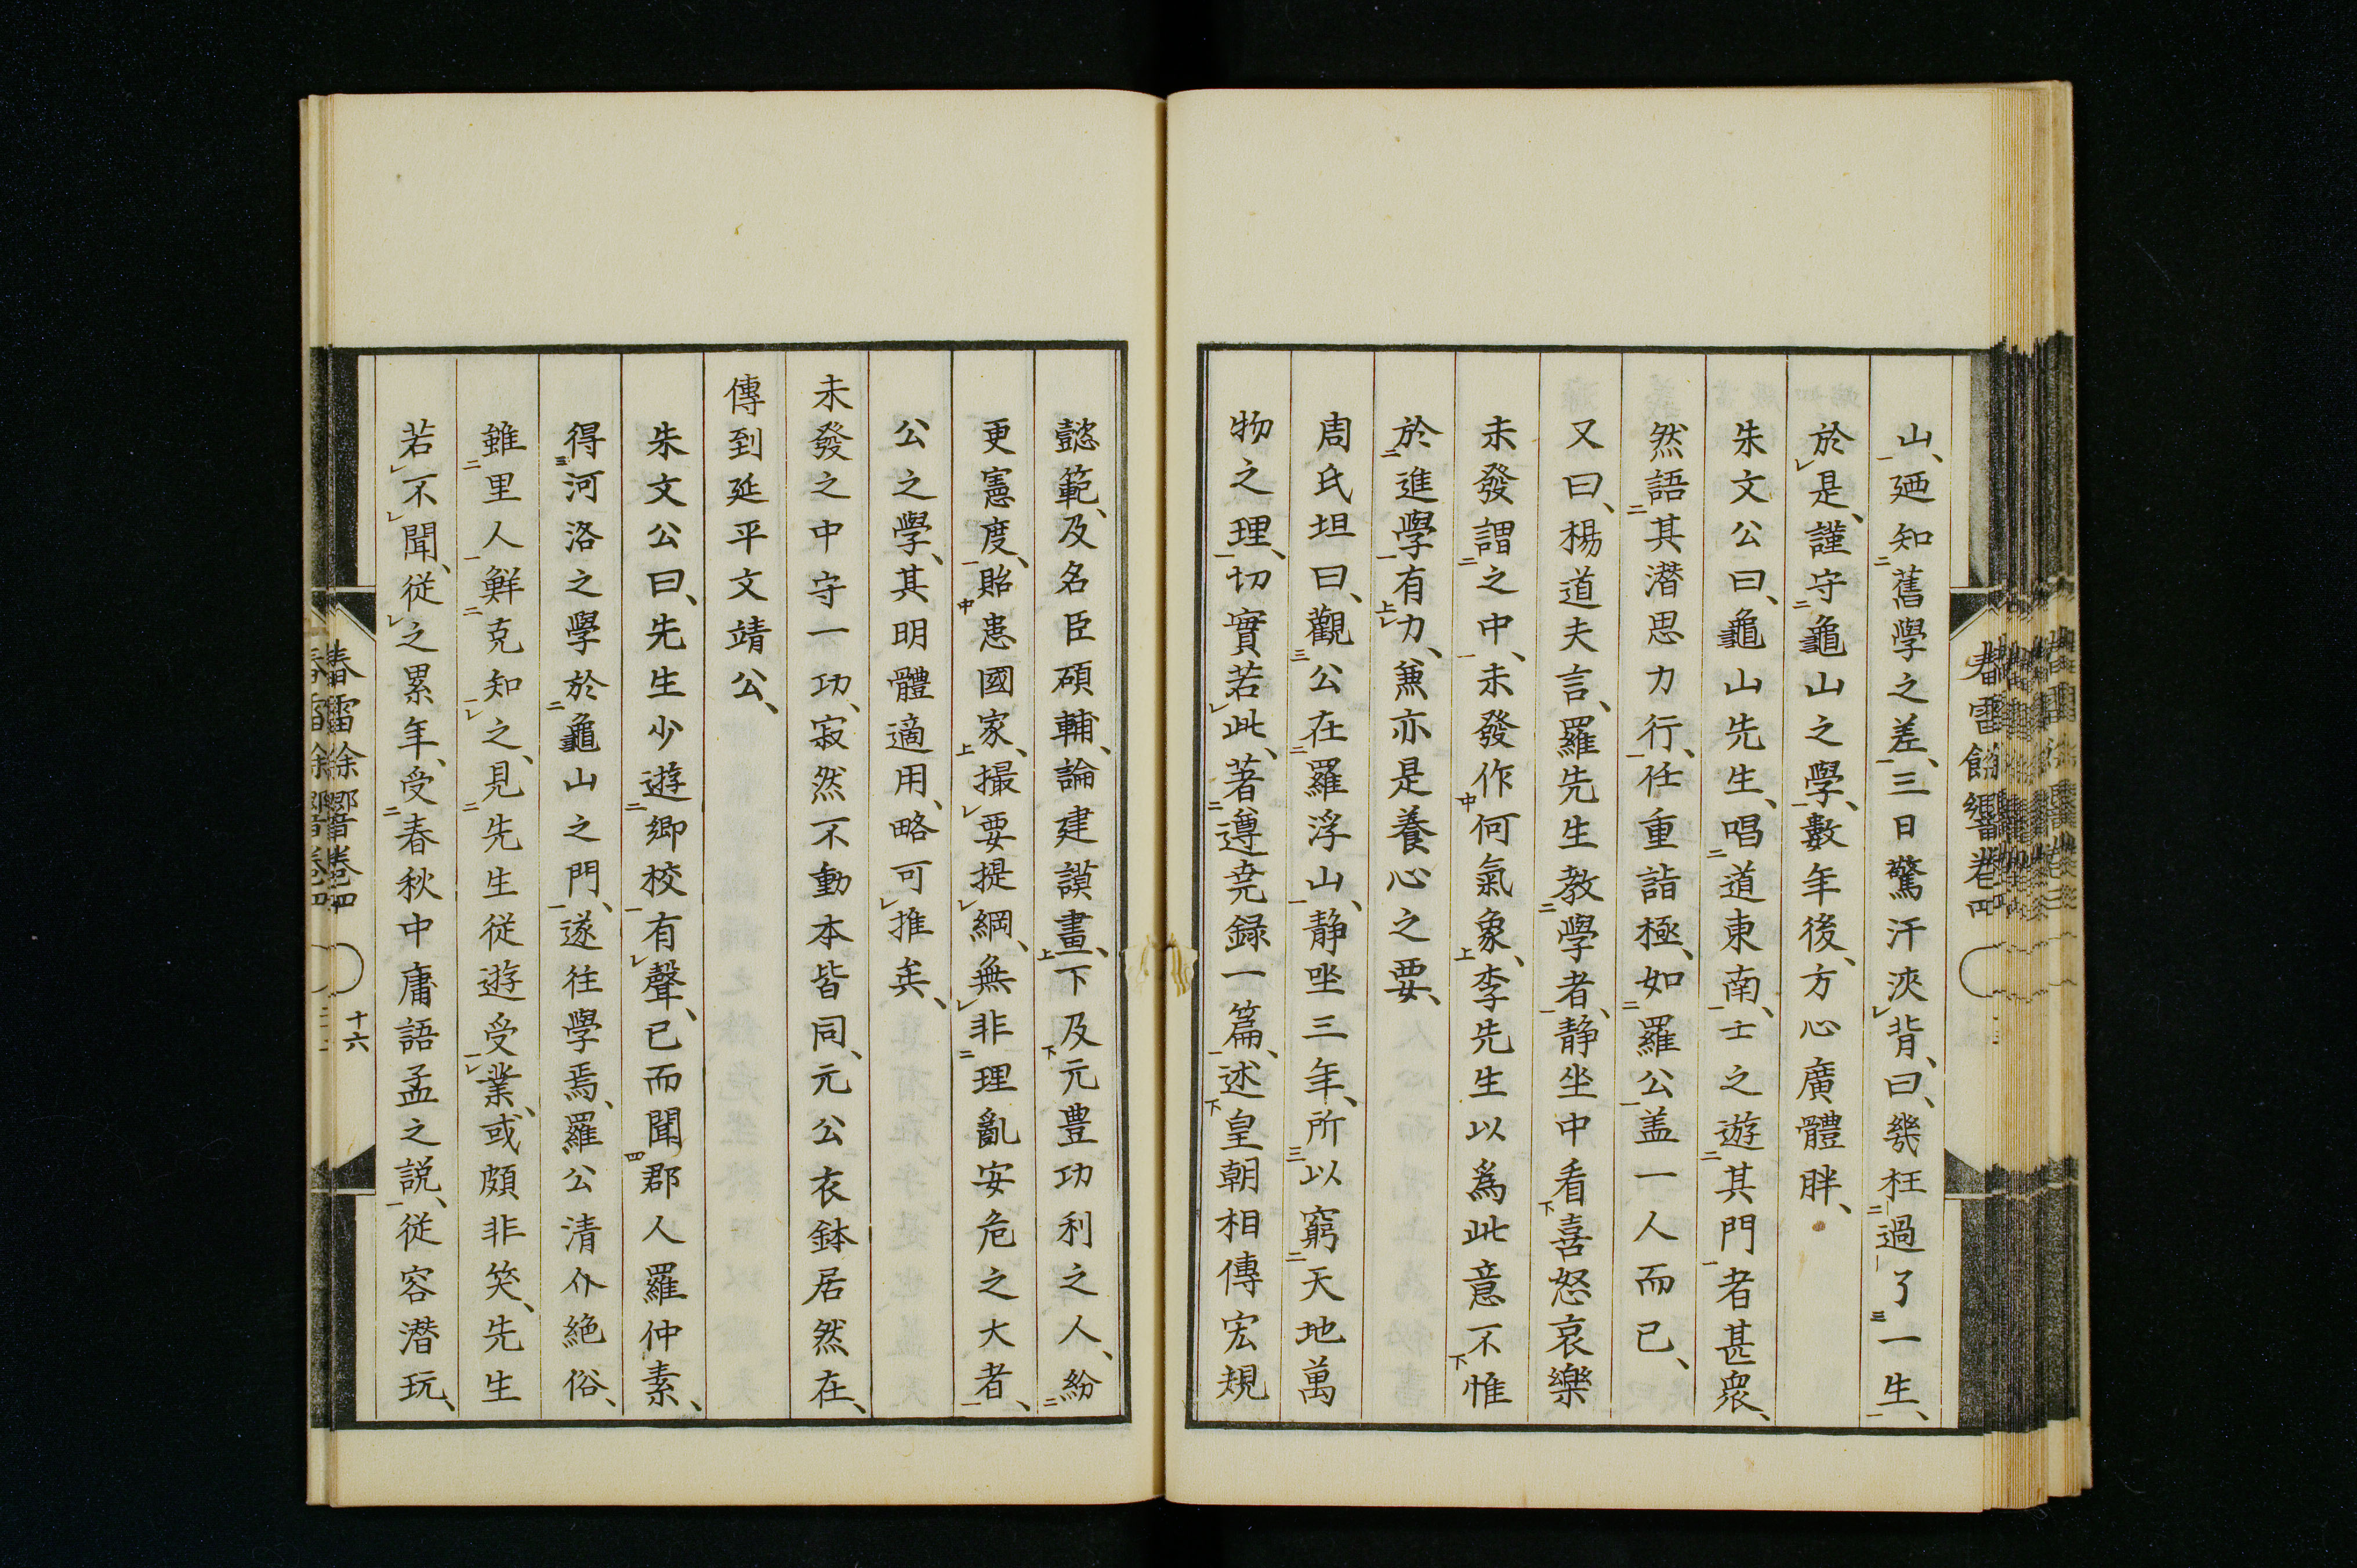 山、廼知舊學之差、三日驚汗浹背、曰、幾枉過了一生、
於是、謹守龜山之學、數年後、方心廣體胖、
朱文公曰、龜山先生、唱道東南、士之遊其門者甚衆、
然語其潛思力行、任重詣極、如羅公盖一人而已、
又曰、楊道夫言、羅先生教學者、静坐中看喜怒哀樂
未發謂之中、未發作何氣象、李先生以爲此意不惟
於進學有力、兼亦是養心之要、
周氏坦曰、觀公在羅浮山、静坐三年、所以窮天地萬
物之理、切實若此、著遵尭録一篇、述皇朝相傳宏規
懿範、及名臣碩輔、論建謨畫、下及元豊功利之人、紛
更憲度、貽患國家、撮要提綱、無非理亂安危之大者、
公之學、其明體適用、略可推矣、
未發之中守一功、寂然不動本皆同、元公衣鉢居然在、
傳到延平文靖公、
朱文公曰、先生少遊郷校有聲、已而聞郡人羅仲素、
得河洛之學於龜山之門、遂往學焉、羅公清介絶俗、
雖里人鮮克知之、見先生從遊受業、或頗非笑、先生
若不聞、從之累年、受春秋中庸語孟之説、從容潛玩、
春雷餘響巻四
十六